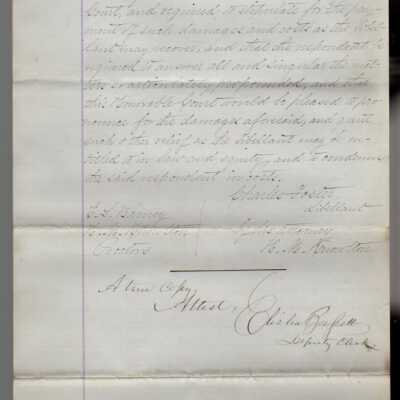 Court, and required to stipulate for the pay-
ment of such damages and costs as the libel-
lant may recover, and that the respondent be
required to answer all and singular the mat-
ters articulately propounded, and that
this Honorable Court would be pleased to pro-
nounce for the damages aforesaid, and grant
such other relief as the libellant may be en-
titled to in law and equity, and to condemn
the said respondent in costs.
Charles Foster
Libellant
By his Attorney
H. M. Knowlton
Proctors
A true copy,
Attest,
Deputy Clerk